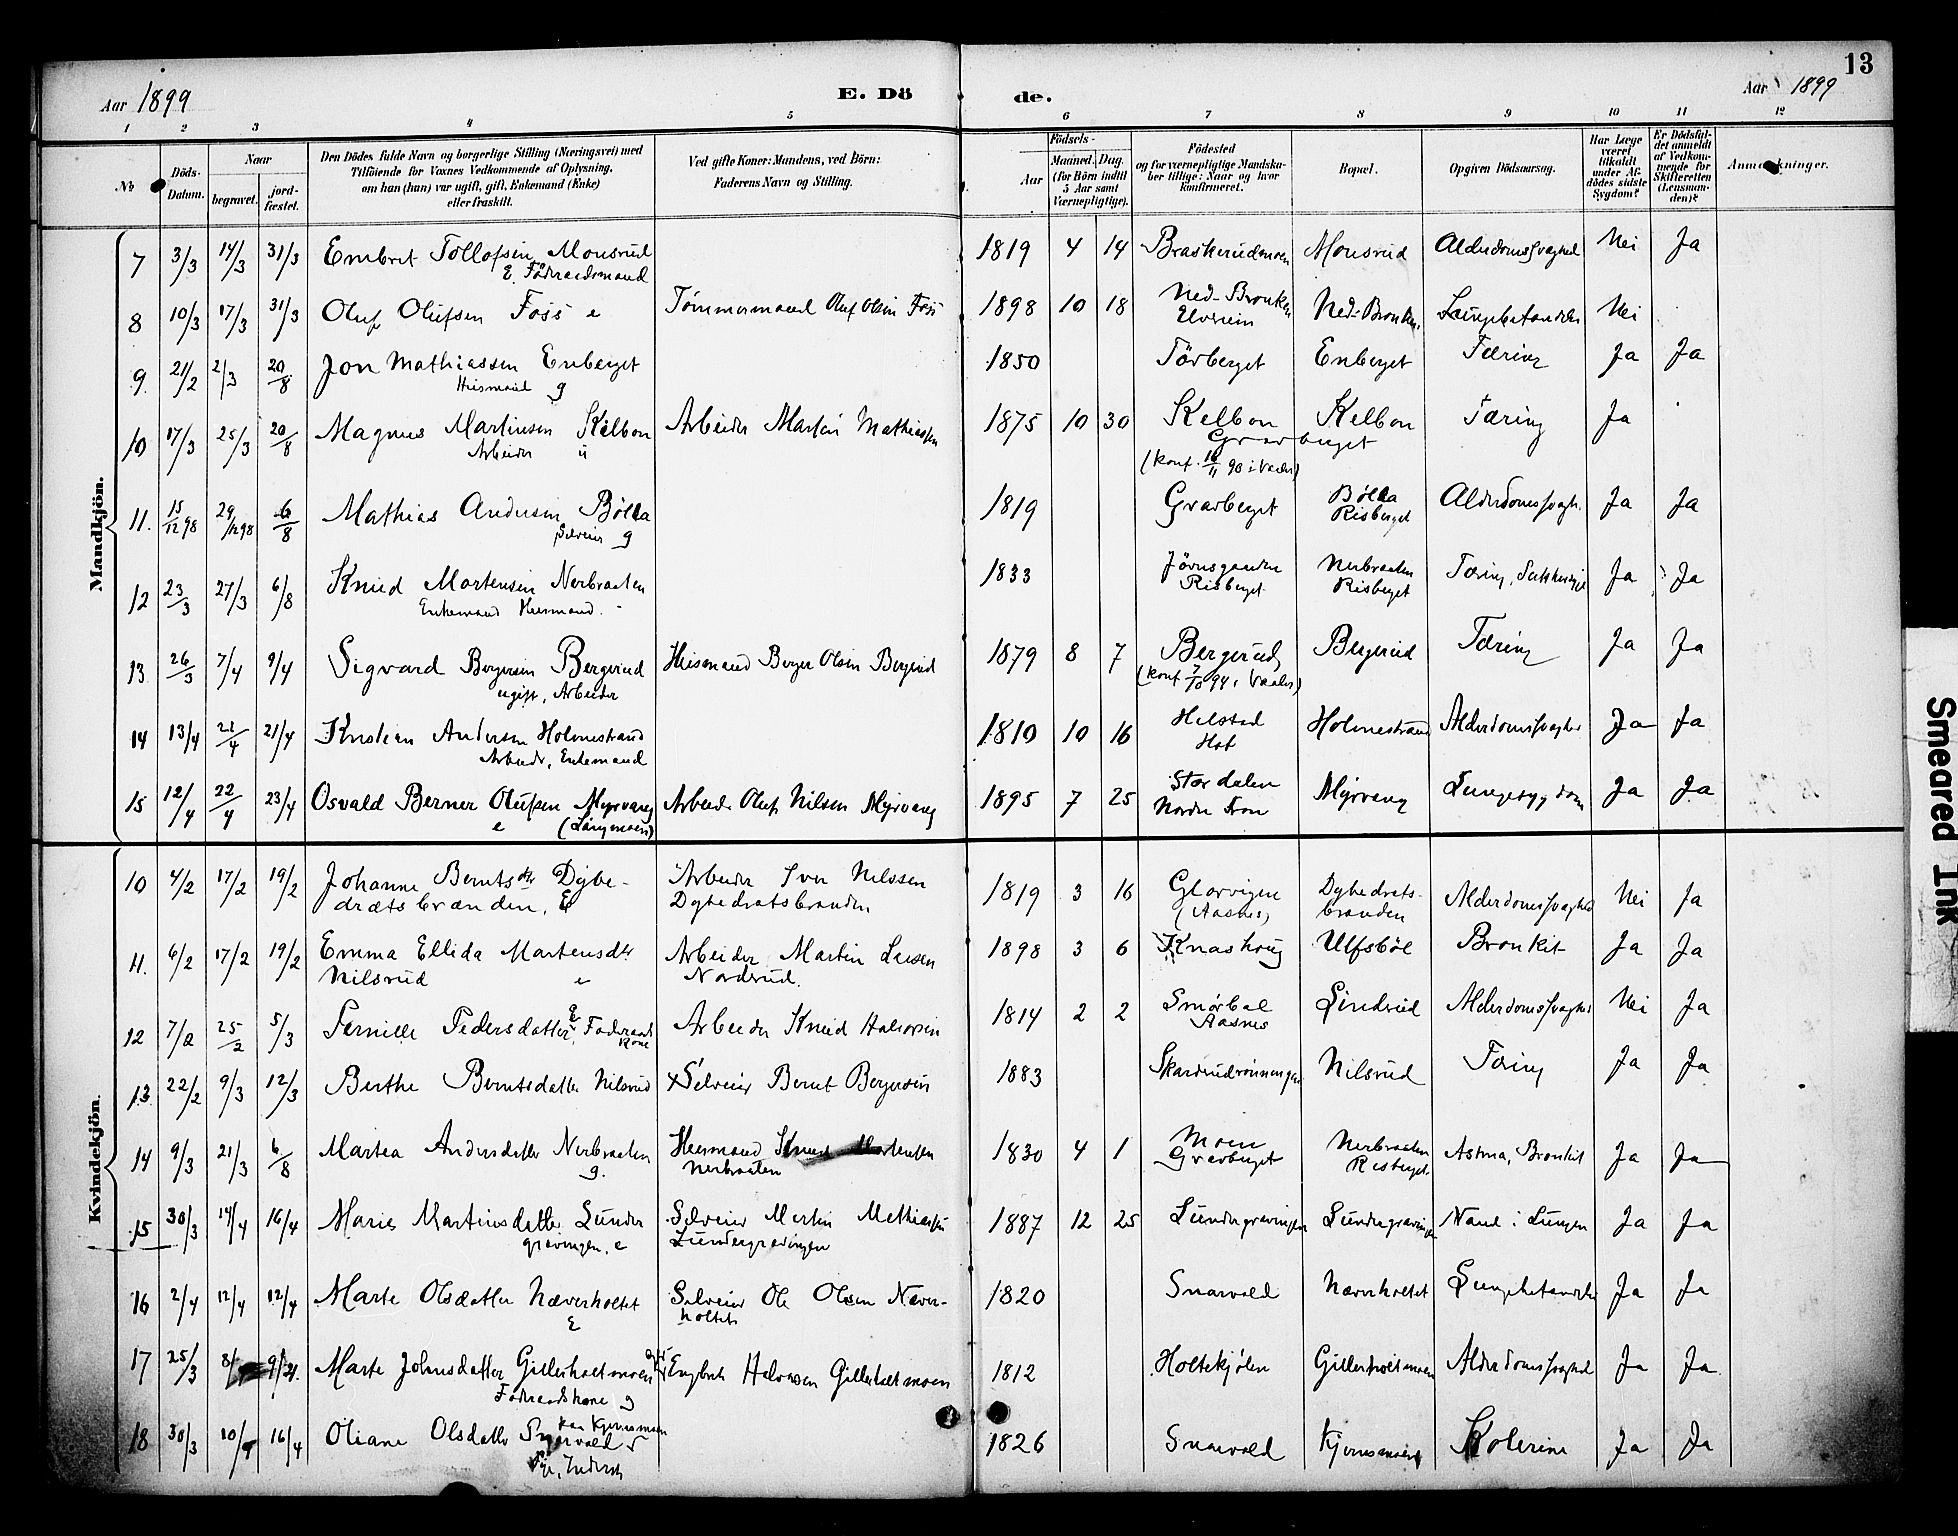 13
Aar 1899
E. Dö
de.
Aar 1899
1 2 3 4 5 6 7 8 9 10 11 12
No
Döds-Datum.
Naar
begravet.
jord-fæstet.
Den Dödes fulde Navn og borgerlige Stilling (Næringsvei) med
Tilföiende for Voxnes Vedkommende af Oplysning,
om han (hun) var ugift, gift, Enkemand (Enke)
eller fraskilt.
Ved gifte Koner: Mandens, ved Börn:
Faderens Navn og Stilling.
Födsels-
Aar
Maaned. Dag.
(for Börn indtil
5 Aar samt
Værnepligtige).
Födested
og for værnepligtige Mandska-
ber tillige: Naar og hvor
konfirmeret.
Bopæl.
Opgiven Dödsaarsag.
Har Læge
været
tilkaldt
under Af-
dödes sidste
Sygdom?
Er Dödsfal-
det anmeldt
af Vedkom-
mende for
Skifteretten
(Lensman-
den)?
Anmærkninger.
Mandkjön.
7 3/3 14/3 31/3 Embret Tollofsen Monsrud 1819 4 14 Braskerudmoen Monsrud Alderdomssvaghed Nei Ja
E. Föderaadsmand
8 10/3 17/3 31/3 Oluf Olufsen Foss e Tømmermand Oluf Olsen Foss 1898 10 18 Ned-Bronken Ned-Bronken Lungebetændelse Nei
Elverum
9. 21/2 2/3 20/8 Jon Mathiassen Enberget 1850 Törberget Enberget Tæring Ja Ja
Husmand g
10 17/3 25/3 20/8 Magnus Martinsen Kelbon Arbeider Martin Mathiassen 1875 10 30 Kelbon Kelbon Tæring Ja
Arbeider u Gravberget
(konf. 16/11 90 i Vaaler)
11. 15/12 98 29/12 98 6/8 Mathias Andersen Bölla 1819 Gravberget Bölla Alderdomssvagh. Ja Ja
Selveier g Risberget
12 23/3 27/3 6/8 Knud Mortensen Nerbraaten 1833 Jörnsgaarden Nerbraaten Tæring, Ja Ja
Enkemand Husmand. Risberget Risberget
13 26/3 7/4 9/4 Sigvard Bergersen Bergerud Husmand Berger Olsen Bergerud 1879 8 7 Bergerud Bergerud Tæring Ja Ja
ugift, Arbeider (konf 7/10 94 i Vaaler)
14 13/4 21/4 21/4 Kristian Andersen Holmestrand 1810 10 16 Helstad Holmestrand Alderdomssvaghed Ja Ja
Arbeider, Enkemand Hof
15 12/4 22/4 23/4 Osvald Berner Olufsen Myrvang Arbeider Oluf Nilsen Myrvang 1895 7 25 Stordalen Myrvang Lungesygdom Ja Ja
e (Langmoen) Nordre Fron
Kvindekjön.
10 4/2 17/2 19/2 Johanne Berntsdtr Dybe- Arbeider Iver Nilssen 1819 3 16 Glorvigen Dybedræts- Alderdomssvaghed Nei Ja
drætsbrænden, E Dybedrætsbranden (Aasnes) branden
11. 6/2 17/2 19/2 Emma Ellida Martensdtr Arbeider Martin Larsen 1898 3 6 Knashaug Ulfsböl Bronkit Ja Ja
Nilsrud e Nordsrud.
12 7/2 25/2 5/3 Pernille Pedersdatter, E Föderaads Kone Arbeider Knud Halvorsen 1814 2 2 Smörbøl Lindrud Alderdomssvaghed Nei Ja
Aasnes
13. 22/2 9/3 12/3 Berthe Berntsdatter Nilsrud Selveier Bernt Bergersen 1883 Skarderudrönningen Nilsrud Tæring Ja Ja
14 9/3 21/3 6/8 Martea Andersdatter Nerbraaten Husmand Knud Mortensen 1830 4 1 Moen Nerbraaten Astma, Bronkit Ja Ja
g. Nerbraaten Gravberget Risberget
15 30/3 14/4 16/4 Marie Martinsdatter Lunder Selveier Martin Mathiassen 1887 12 25 Lundergravingen Lundergravingen Vand i Lungen Ja Ja
gravingen. e Lundergravingen
16 2/4 12/4 12/4 Marte Olsdatter Næverholtet Selveier Ole Olsen Næver- 1820 Snarvold Næverholtet Lungebetændelse Ja Ja
E holtet
17 25/3 8/ 9/4. Marte Johnsdatter Gillerholtmoen Engebret Halvorsen Gillerholtmoen 1812 Holtekjölen Gillerholtmoen Alderdomssvaghed Ja Ja
Föderaadskone g
18 30/3 10/4 16/4 Oliane Olsdatter Snarvold paa Kjernsmoen 1826 Snarvold Kjernsmoen Kolerine Ja Ja
Smeared Ink